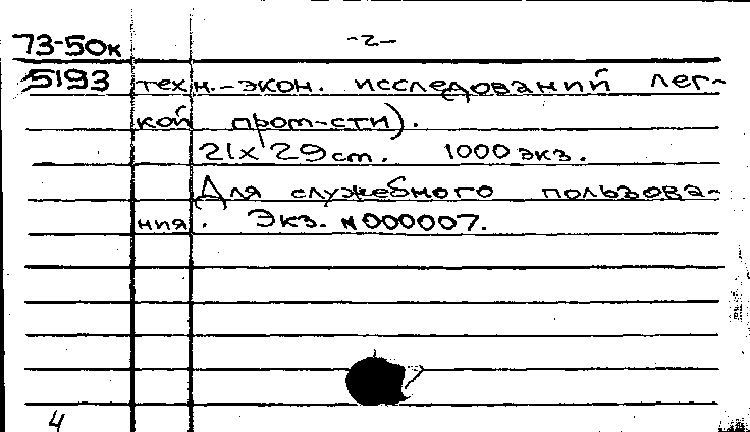 73-50к -2-
5193 техн.-экон. исследований лег-
кой пром-сти).
21х29 cm. 1000 экз.
Для служебного пользова-
ния. Экз. №000007.
4